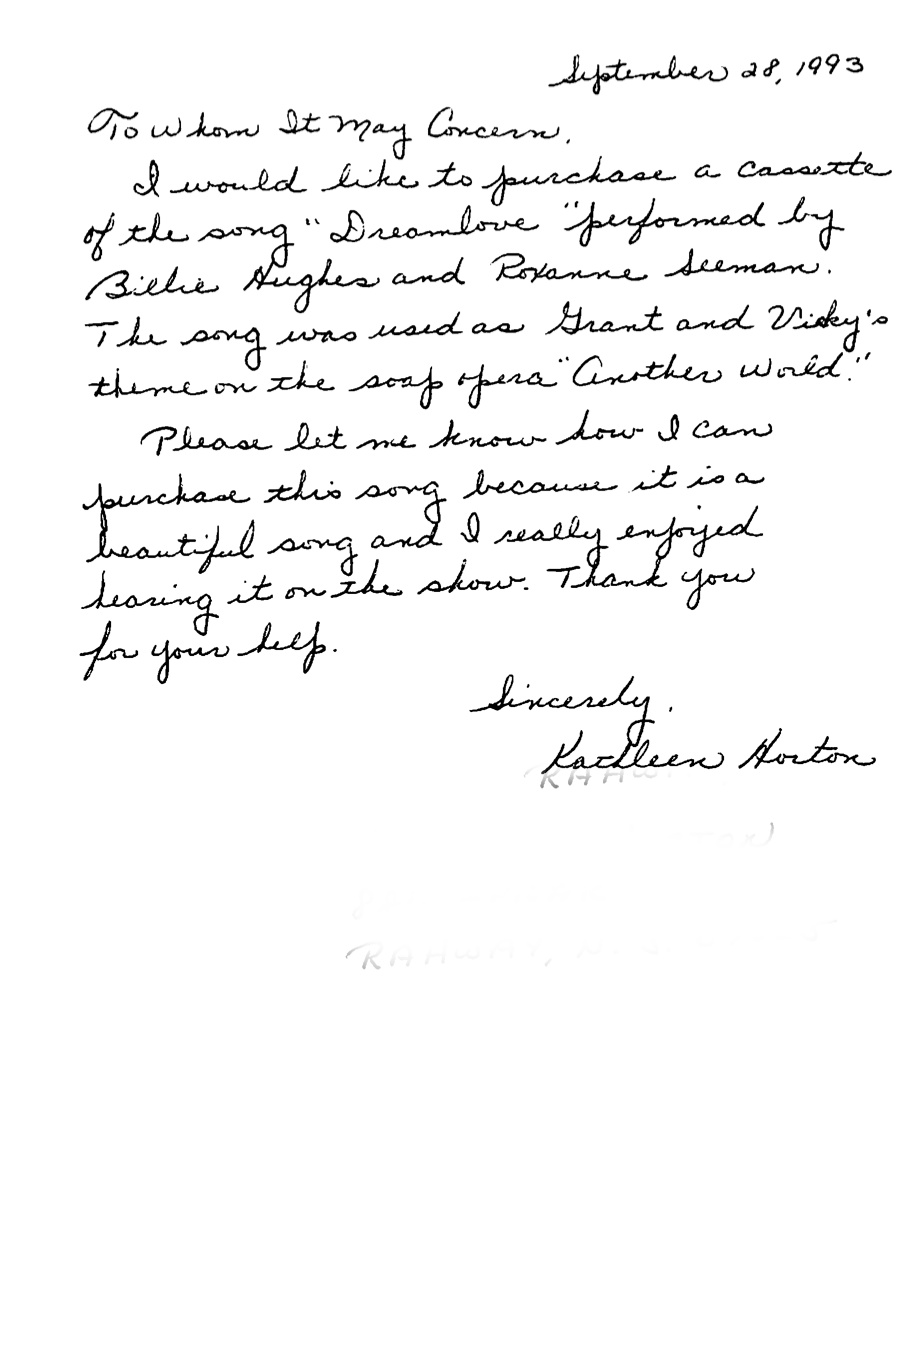 September 28, 1993
To Whom It May Concern,
I would like to purchase a cassette
of the song "Dreamlove" performed by
Billie Hughes and Roxanne Seeman.
The song was used as Grant and Vicky's
theme on the soap opera "Another World."
Please let me know how I can
purchase this song because it is a
beautiful song and I really enjoyed
hearing it on the show. Thank you
for your help.
Sincerely,
Kathleen Horton
RAHWAY,